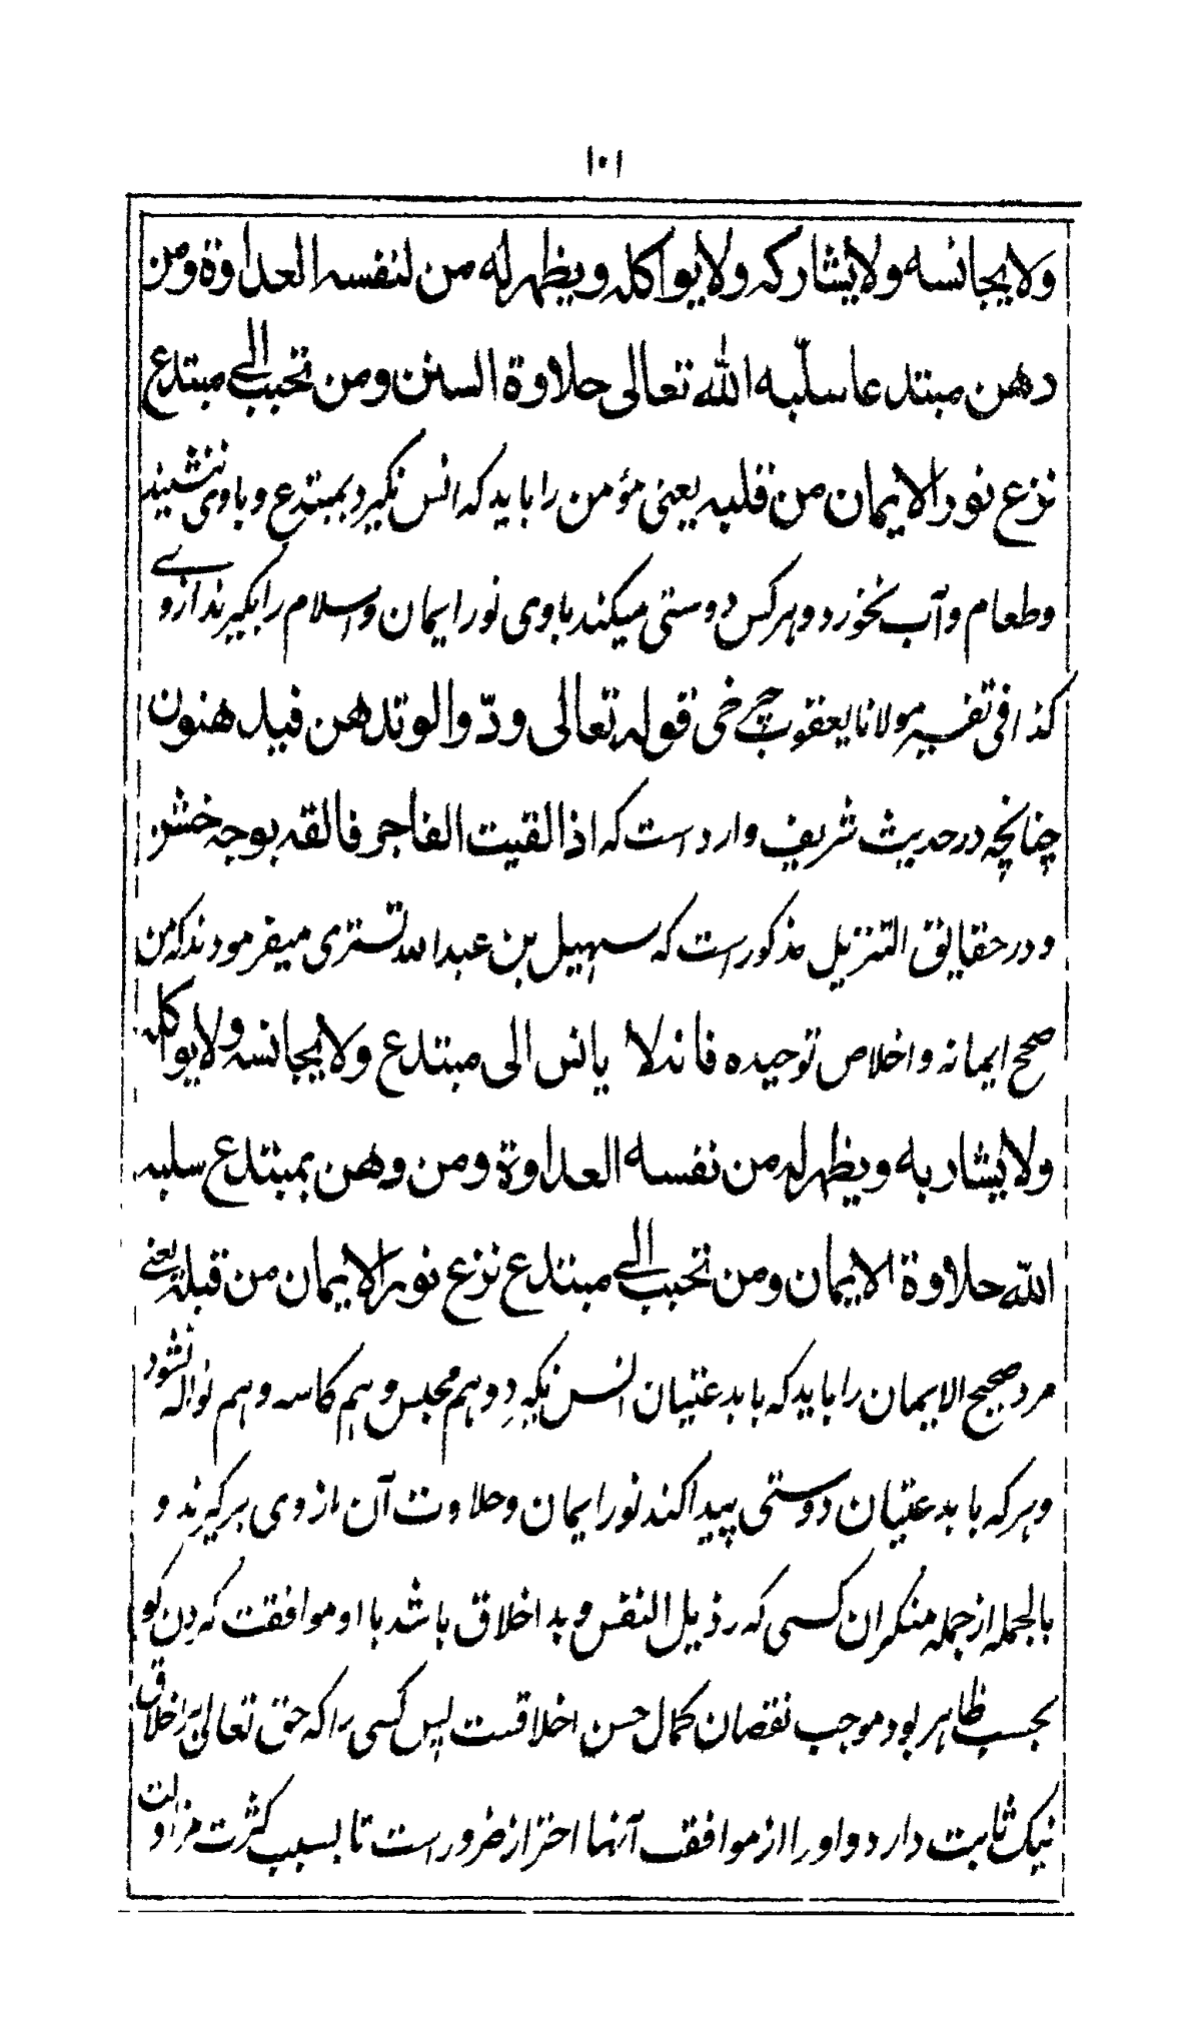 ۱۰۱
ولا يجانسه ولا يشاركه ولا يواكله ويظهر له من لنفسه العداوة ومن
دهن مبتدعا سلّبه الله تعالى حلاوة السنن ومن تحبب الى مبتدع
نزع نور الايمان من قلبه يعنى مؤمن را باید که انس نگیرد بمبتدع و باوی ننشیند
و طعام و آب نخورد و هر کس دوستی میکند باوی نور ایمان و اسلام را بگیرند از وے
کذا فی تفسیر مولانا یعقوب چرخی قوله تعالى ودّوا لو تدهن فيدهنون
چنانچه در حدیث شریف وارد است که اذا لقيت الفاجر فالقه بوجه خشن
و در حقایق التنزیل مذکور است که سهیل بن عبدالله تستری میفرمودند که من
صحح ایمانه و اخلاص توحیده فانه لا يانس الى مبتدع ولا يجانسه ولا يواكله
ولا يشاربه ويظهر له من نفسه العداوة ومن وهن بمبتدع سلبه
الله حلاوة الايمان ومن تحبب الى مبتدع نزع نور الايمان من قبله یعنے
مرد صحیح الایمان را باید که با بدعتیان انس نگیرد و هم مجلس و هم کاسه و هم نواله نشود
و هر که با بدعتیان دوستی پیدا کند نور ایمان و حلاوت آن از وی برگیرند و
بالجمله از جمله منکران کسی که رذیل النفس و بد اخلاق باشد با او موافقت کردن گو
بحسب ظاهر بود موجب نقصان کمال حسن اخلاقست پس کسی را که حق تعالی بر اخلاق
نیک ثابت دارد و اورا از موافقت آنها احتراز ضرورست تا بسبب کثرت مزاولت